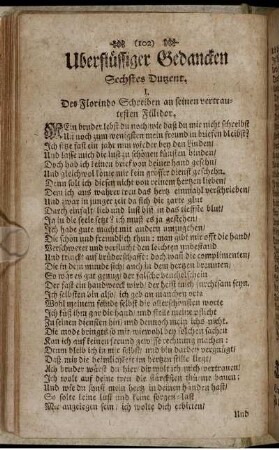 (102)
Uberflüssiger Gedancken
Sechstes Dutzent.
I.
Des Florindo Schreiben an seinen vertrau-
testen Fillidor.
Ein bruder lebst du noch wie daß du mir nicht schreibst
Und noch zum wenigsten mein freund in briefen bleibst?
Ich sitze fast ein jahr nun wieder bey den Linden/
Und lasse mich die lust in schönen künsten binden/
Doch hab ich keinen brief von deiner hand gesehn/
Und gleichwol könte mir kein grösser dienst geschehn.
Denn soll ich diesen nicht von reinem hertzen lieben/
Dem ich aus wahrer treu das hertz einmahl verschrieben/
Und zwar in junger zeit da sich die zarte glut
Durch einfalt lieb und lust biß in das
Ja in die seele setzt? ich muß es ja gestehen/
Ich habe gute macht mit andern umzugehen/
Die schön und freundlich thun: man gibt mir offt die hand/
Verschweret und verflucht den leichten unbestand
Und trinckt auf brüderschafft: doch weiß die complimenten/
Die in dem munde sich/ auch zu dem hertzen
So wär es gut genug: der falsche
Der fast ein handwerck wird/ der heist auch
Ich selbsten bin also/ ich geb an manchen orth
Wohl meinem feinde selbst die allerschönsten worte
Ich küß ihm gar die hand/ und stelle meine pflicht
Zu seinen diensten hin: und dennoch mein ichs nicht.
Die mode bringts so mit: wiewohl bey solchen sachen
Kan ich auf keinen freund gewisse rechnung machen:
Drum bleib ich in mir selbst/ und bin darbey vergnügt/
Daß mir die heimlichkeit im hertzen stille liegt.
Ach bruder wärest du hier/ dir wolt ich mich vertrauen/
Ich wolt auf deine treu die stärcksten thürme bauen:
Und wie du sonst mein hertz in deinen händen hast/
So solte keine lust und keine sorgen-last
Mir angelegen seyn: ich wolte dich erbitten/
Und